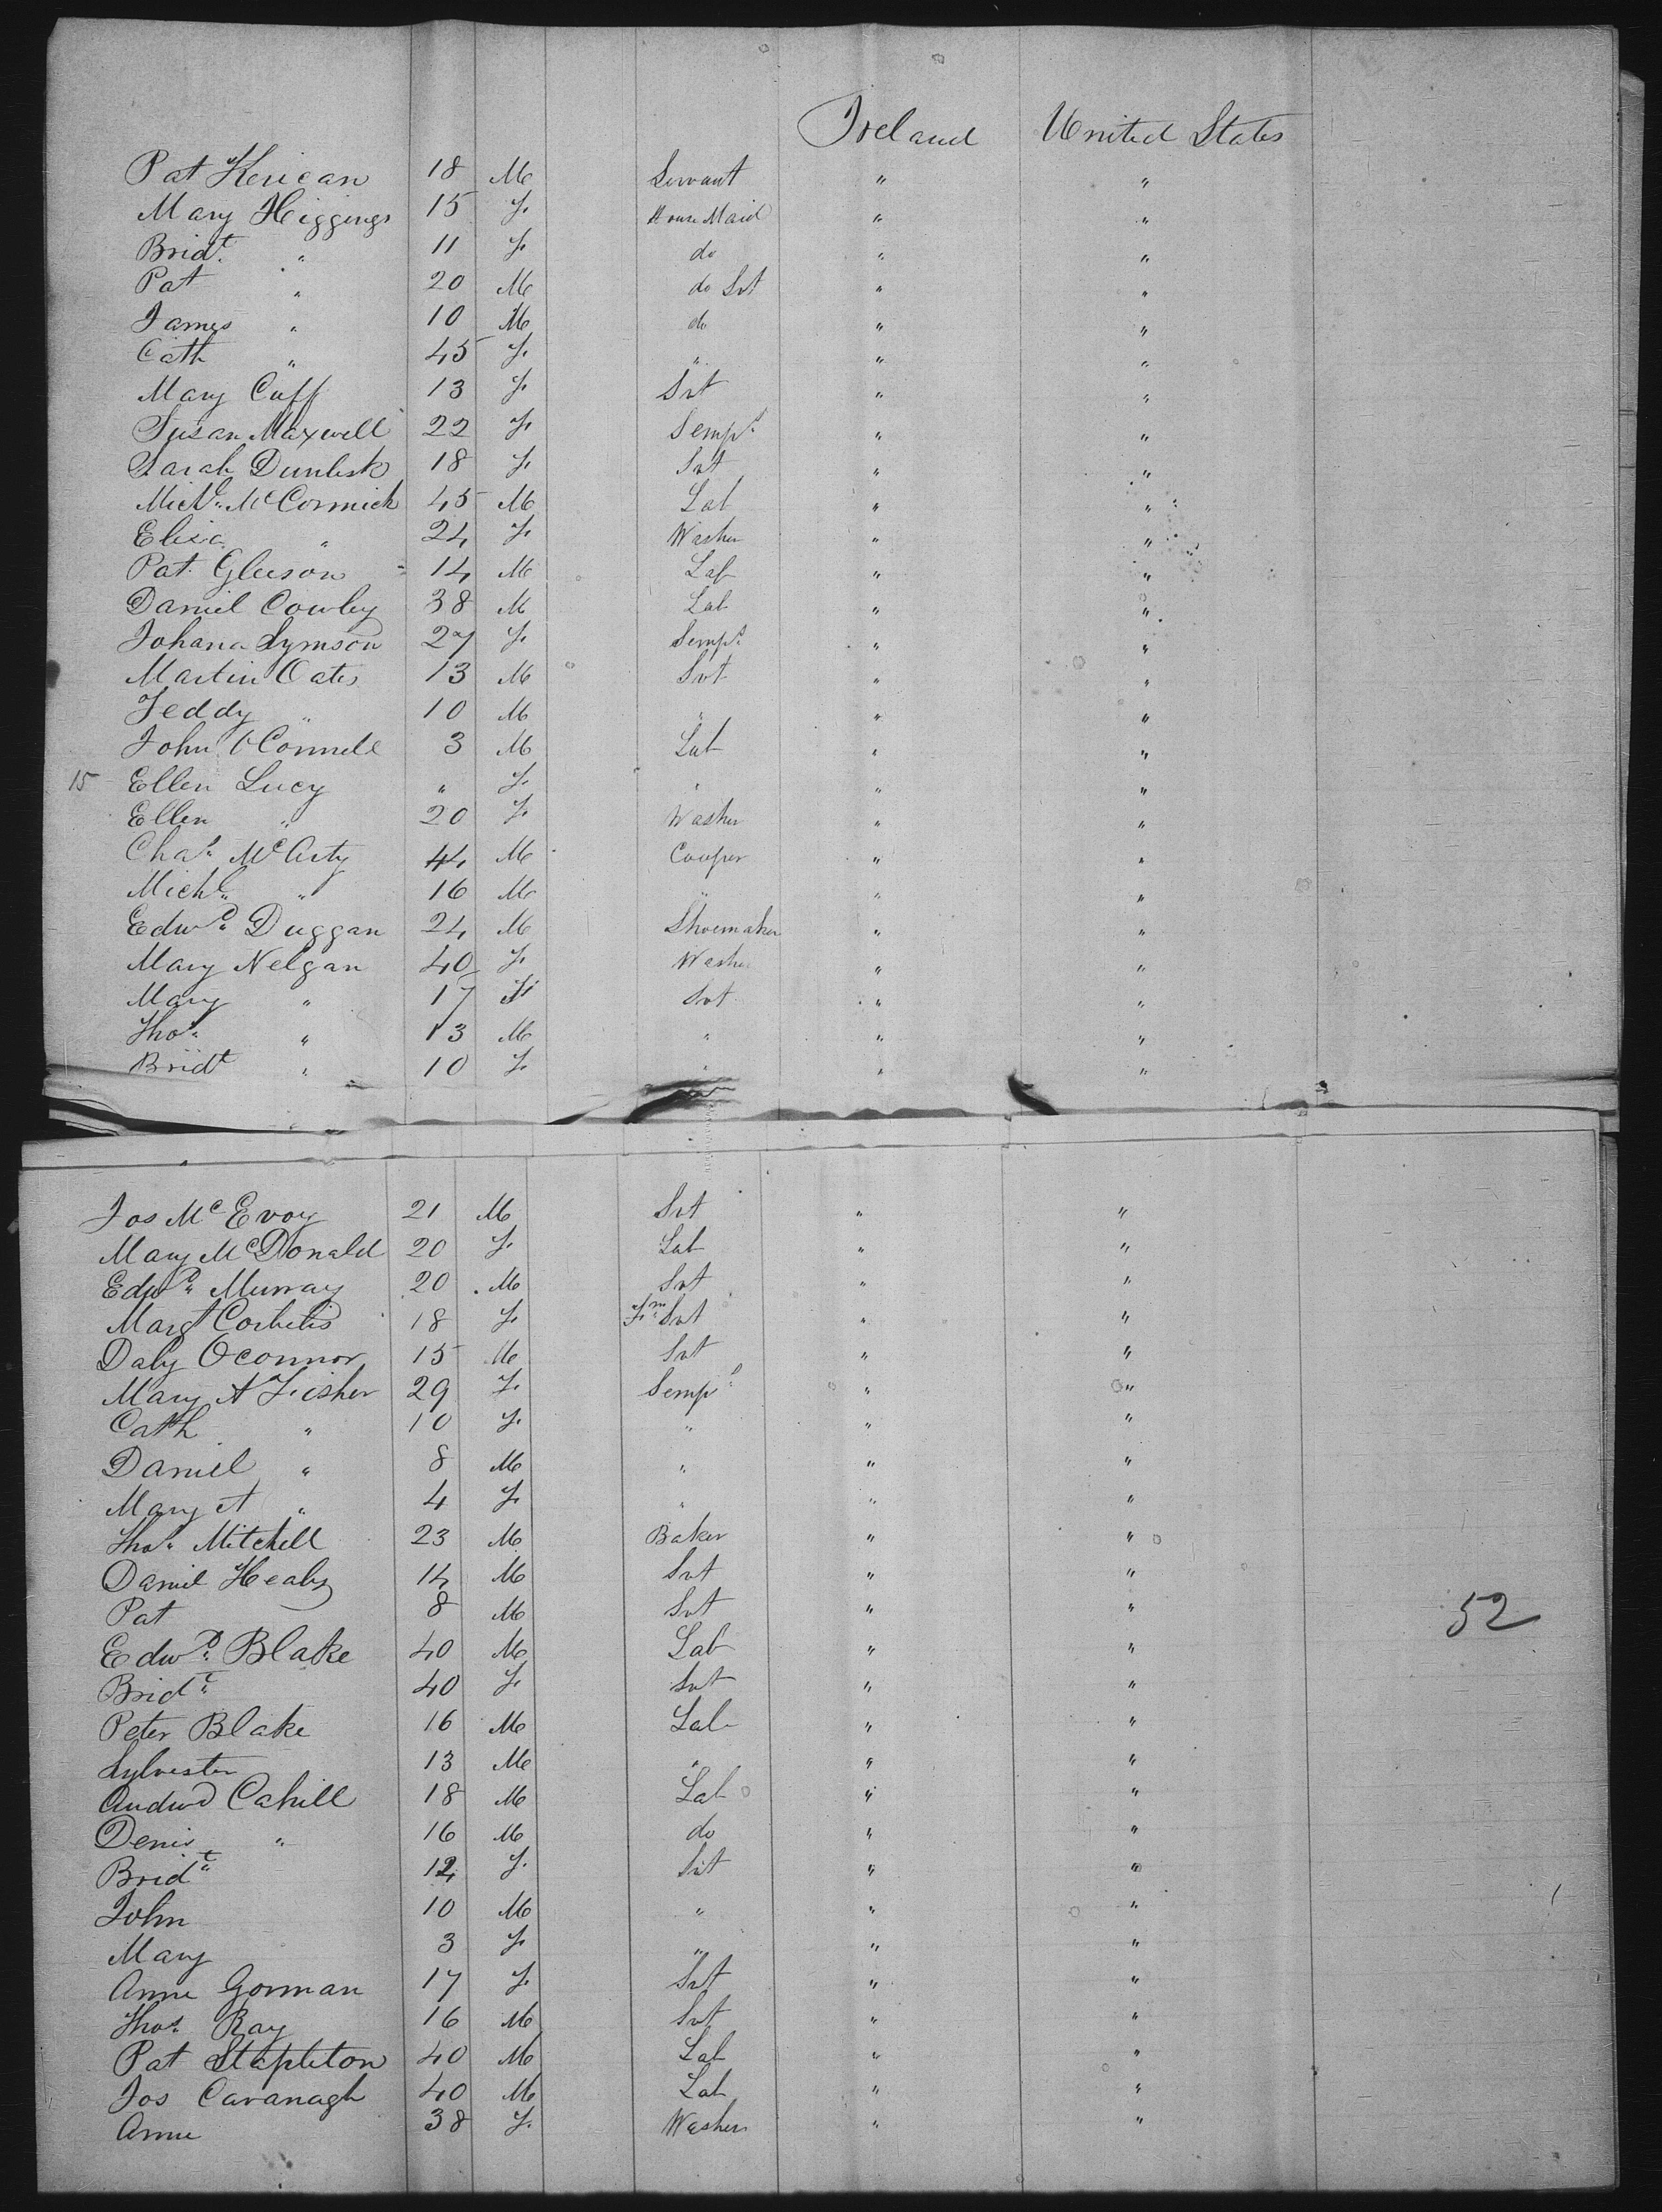 Ireland United States
Pat Kerican 18 M Servant " "
Mary Higgings 15 F. House Maid " "
Bridt. " 11 F. do " "
Pat " 20 M do Svt " "
James " 10 M do " "
Cath " 45 F. " " "
Mary Cuff 13 F. Svt " "
Susan Maxwell 22 F. Semps. " "
Sarah 18 F. Svt " "
Michl. McCormick 45 M Lab " "
Elisa " 24 F. Washer " "
Pat Gleeson 14 M Lab " "
Daniel Cowley 38 M Lab " "
Johana Symson 27 F. Semps. " "
Martin Oates 13 M Svt " "
Teddy " 10 M " " "
John OConnell 3 M Lab " "
15 Ellen Lucy " F. " " "
Ellen " 20 F. Washer " "
Chas. McCarty 44 M Cooper " "
Michl. " 16 M " " "
Edwd. Duggan 24 M Shoemaker " "
Mary Nelgan 40 F. Washer " "
Mary " 17 F. Svt " "
Thos. " 13 M " " "
Bridt " 10 F. " " "
Jos McEvoy 21 M Svt " "
Mary McDonald 20 F. Lab " "
Edwd. Murray 20 M Svt " "
Margt 18 F. Fm. Svt " "
Daly Oconnor 15 M Svt " "
Mary A Fisher 29 F. Semps. " "
Cath " 10 F. " " "
Daniel " 8 M " " "
Mary A " 4 F. " " "
Thos. Mitchell 23 M Baker " "
Daniel Healy 14 M Svt " "
Pat 8 M Svt " " 52
Edwd. Blake 40 M Lab " "
Bridt. 40 F. Svt " "
Peter Blake 16 M Lab " "
Sylvester 13 M " " "
Andwd Cahill 18 M Lab " "
Denis " 16 M do " "
Bridt. 12 F. Svt " "
John 10 M " " "
Mary 3 F. " " "
Anne Gorman 17 F. Svt " "
Thos. Ray 16 M Svt " "
Pat Stapleton 40 M Lab " "
Jos Cavanagh 40 M Lab " "
Anne 38 F. Washer " "